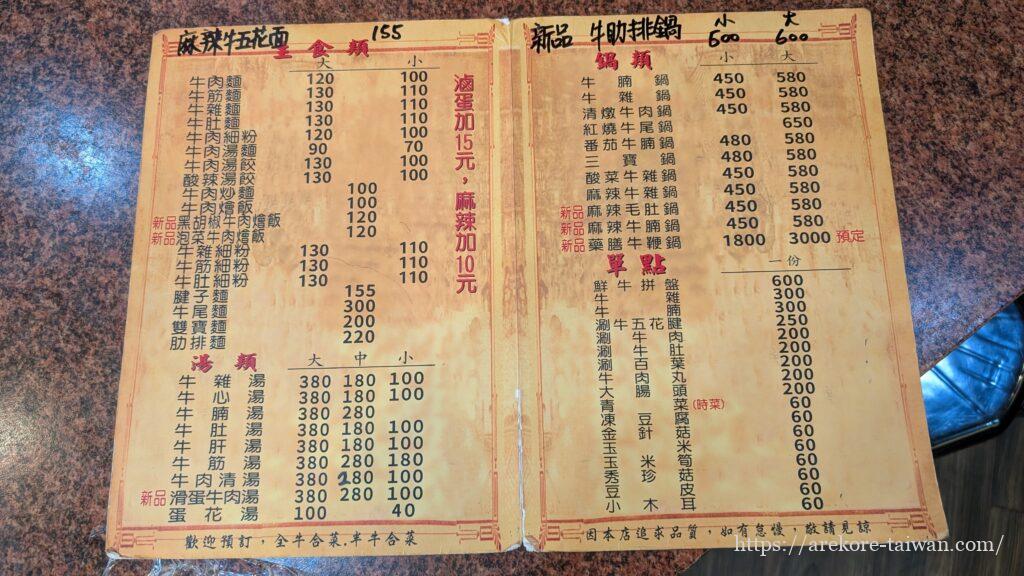 麻辣牛五花面 155
主食類
大 小
牛肉麵 120 100
牛筋麵 130 110
牛雜麵 130 110
牛肚麵 130 110
牛肉細粉 120 100
牛肉湯麵 90 70
牛肉湯餃 130 100
酸辣湯餃 130 100
牛肉炒麵 100
牛肉燴飯 100
新品 黑胡椒牛肉燴飯 120
新品 泡菜牛肉燴飯 120
牛雜細粉 130 110
牛筋細粉 130 110
牛肚細粉 130 110
腱子麵 155
牛尾麵 300
雙寶麵 200
肋排麵 220
滷蛋加15元，麻辣加10元
湯類
大 中 小
牛雜湯 380 180 100
牛心湯 380 180 100
牛腩湯 380 280
牛肚湯 380 180 100
牛肝湯 380 180 100
牛筋湯 380 280 180
牛肉清湯 380 280 100
新品 滑蛋牛肉湯 380 280 100
蛋花湯 100 40
歡迎預訂，全牛合菜.半牛合菜
新品 牛肋排鍋 小500 大600
鍋類
小 大
牛腩鍋 450 580
牛雜鍋 450 580
清燉牛肉鍋 450 580
紅燒牛尾鍋 650
番茄牛腩鍋 480 580
三寶鍋 480 580
酸菜牛雜鍋 450 580
麻辣牛雜鍋 450 580
新品 麻辣毛肚鍋 450 580
新品 麻辣牛腩鍋 450 580
新品 藥膳牛鞭鍋 1800 3000 預定
單點
一份
鮮牛拼盤 600
牛雜 300
牛腩 300
涮牛五花腱 250
涮牛肉 200
涮牛肚 200
涮百葉 200
牛肉丸 200
大腸頭 200
青菜(時菜) 60
凍豆腐 60
金針菇 60
玉米 60
玉米筍 60
秀珍菇 60
豆皮 60
小木耳 60
因本店追求品質，如有怠慢，敬請見諒
https://arekore-taiwan.com/